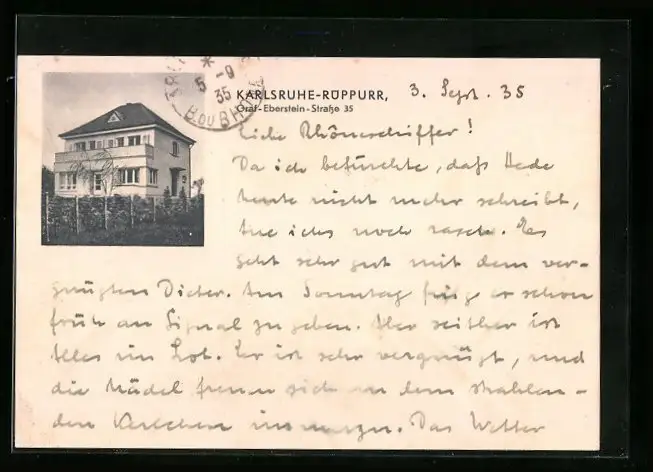 KARLSRUHE-RÜPPURR, 3. Sept. 35
Graf-Eberstein-Straße 35
5 -9
35
B. DU RHÔNE
Liebe Rhôneschiffer!
Da ich befürchte, daß Hede
heute nicht mehr schreibt,
tue ich's noch rasch. Es
geht sehr gut mit dem ver-
gnügten Dieter. Am Sonntag fing er schon
früh an Signal zu geben. Aber seither ist
Alles im Lot. Er ist sehr vergnügt, und
die Mädel freuen sich an dem strahlen-
den Kerlchen Das Wetter